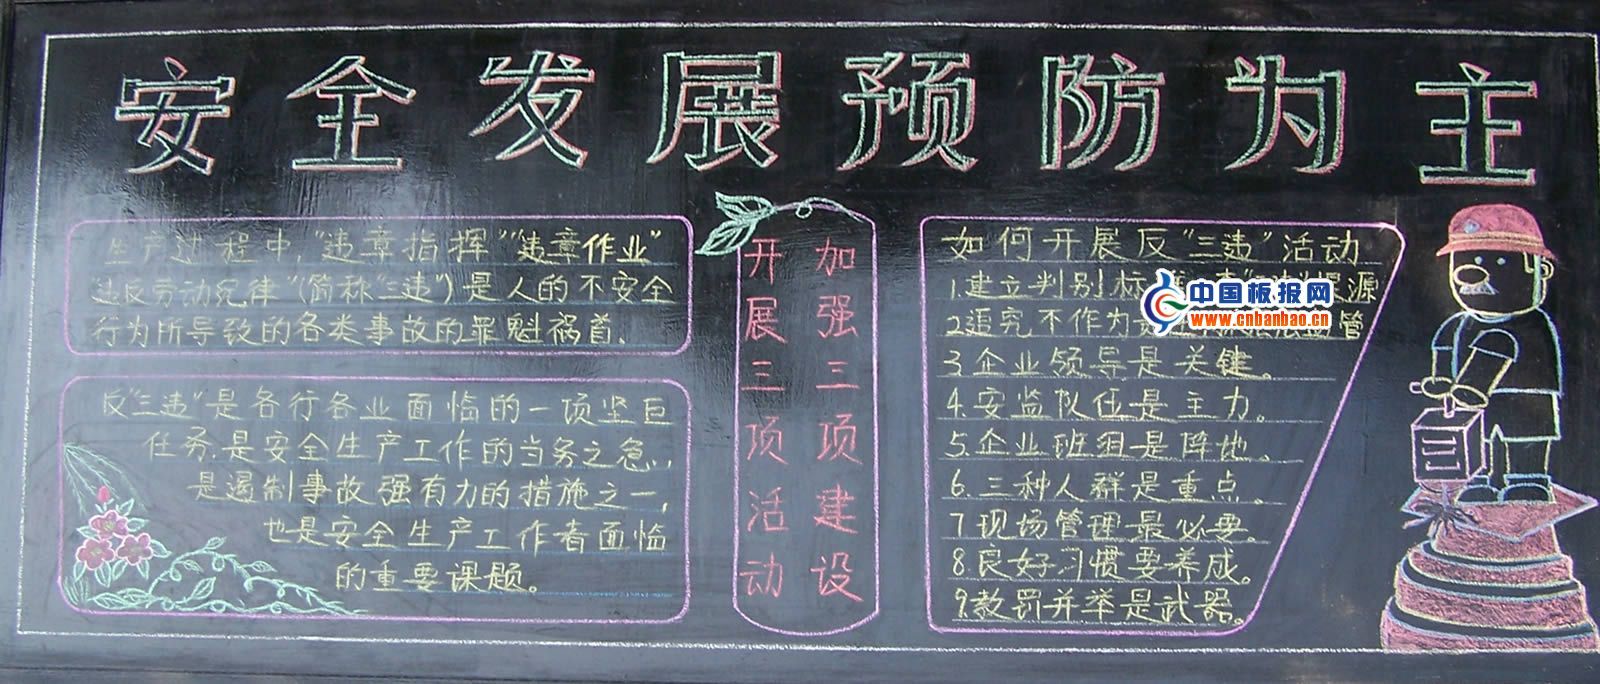 安全发展预防为主
生产过程中,"违章指挥""违章作业"
违反劳动纪律"(简称"三违")是人的不安全
行为所导致的各类事故的罪魁祸首.
反"三违"是各行各业面临的一项坚巨
任务.是安全生产工作的当务之急,
是遏制事故强有力的措施之一,
也是安全生产工作者面临
的重要课题。
加强三项建设
开展三项活动
如何开展反"三违"活动
1.建立判别标 根源
2.追究不作为 管
3.企业领导是关键。
4.安监队伍是主力。
5.企业班组是阵地。
6.三种人群是重点。
7.现场管理最必要。
8.良好习惯要养成。
9.教罚并举是武器。
中国板报网
www.cnbanbao.cn